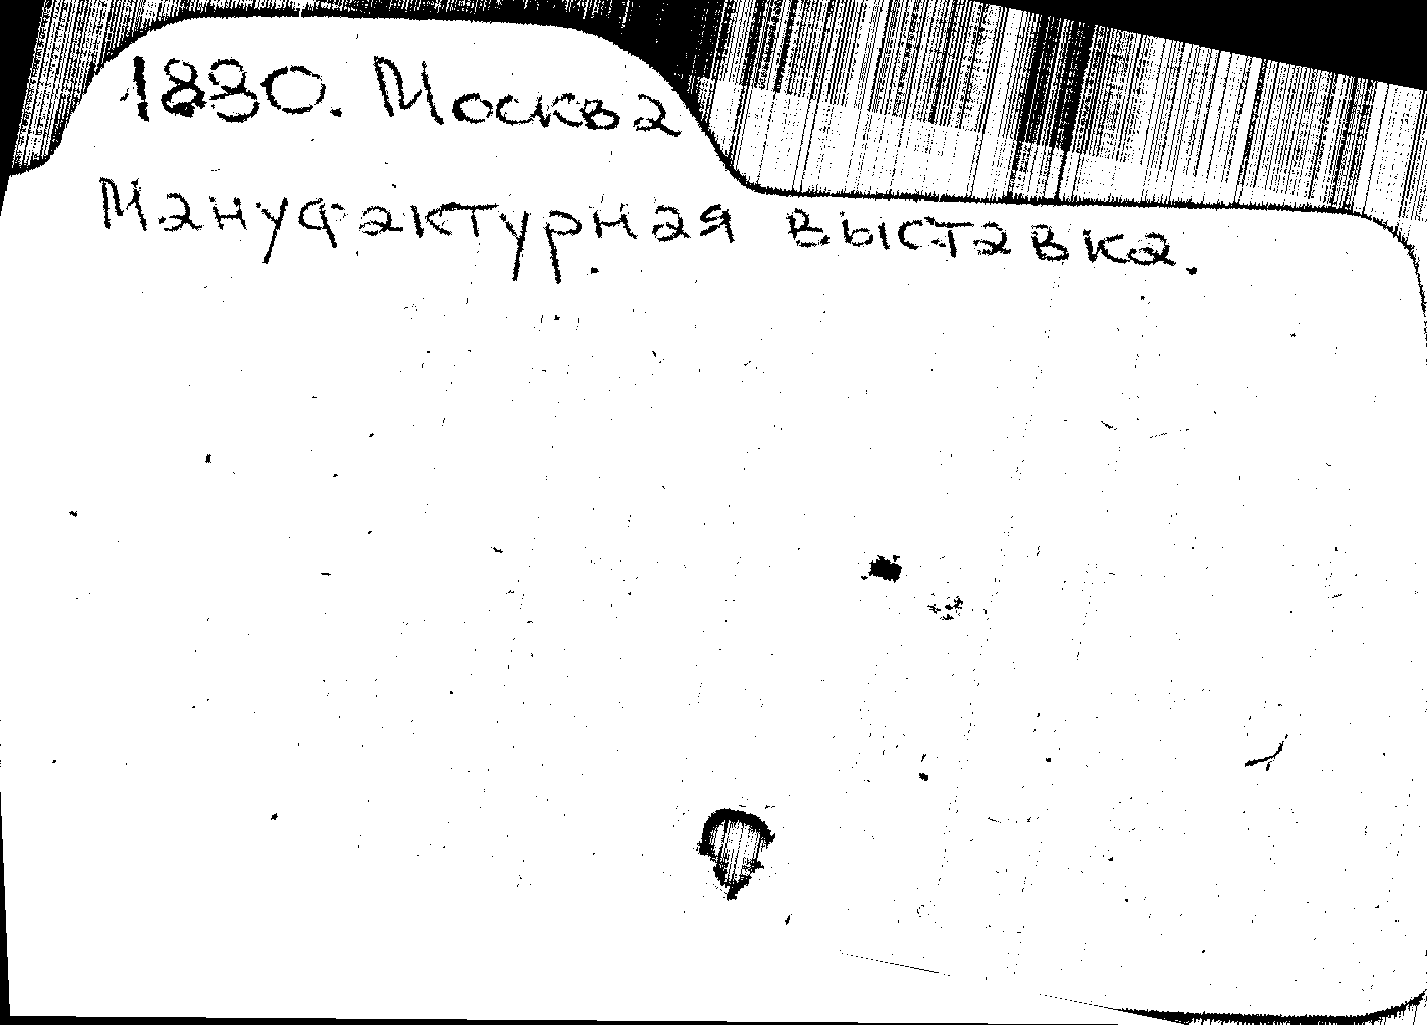 1880. Москва
Мануфактурная выставка.